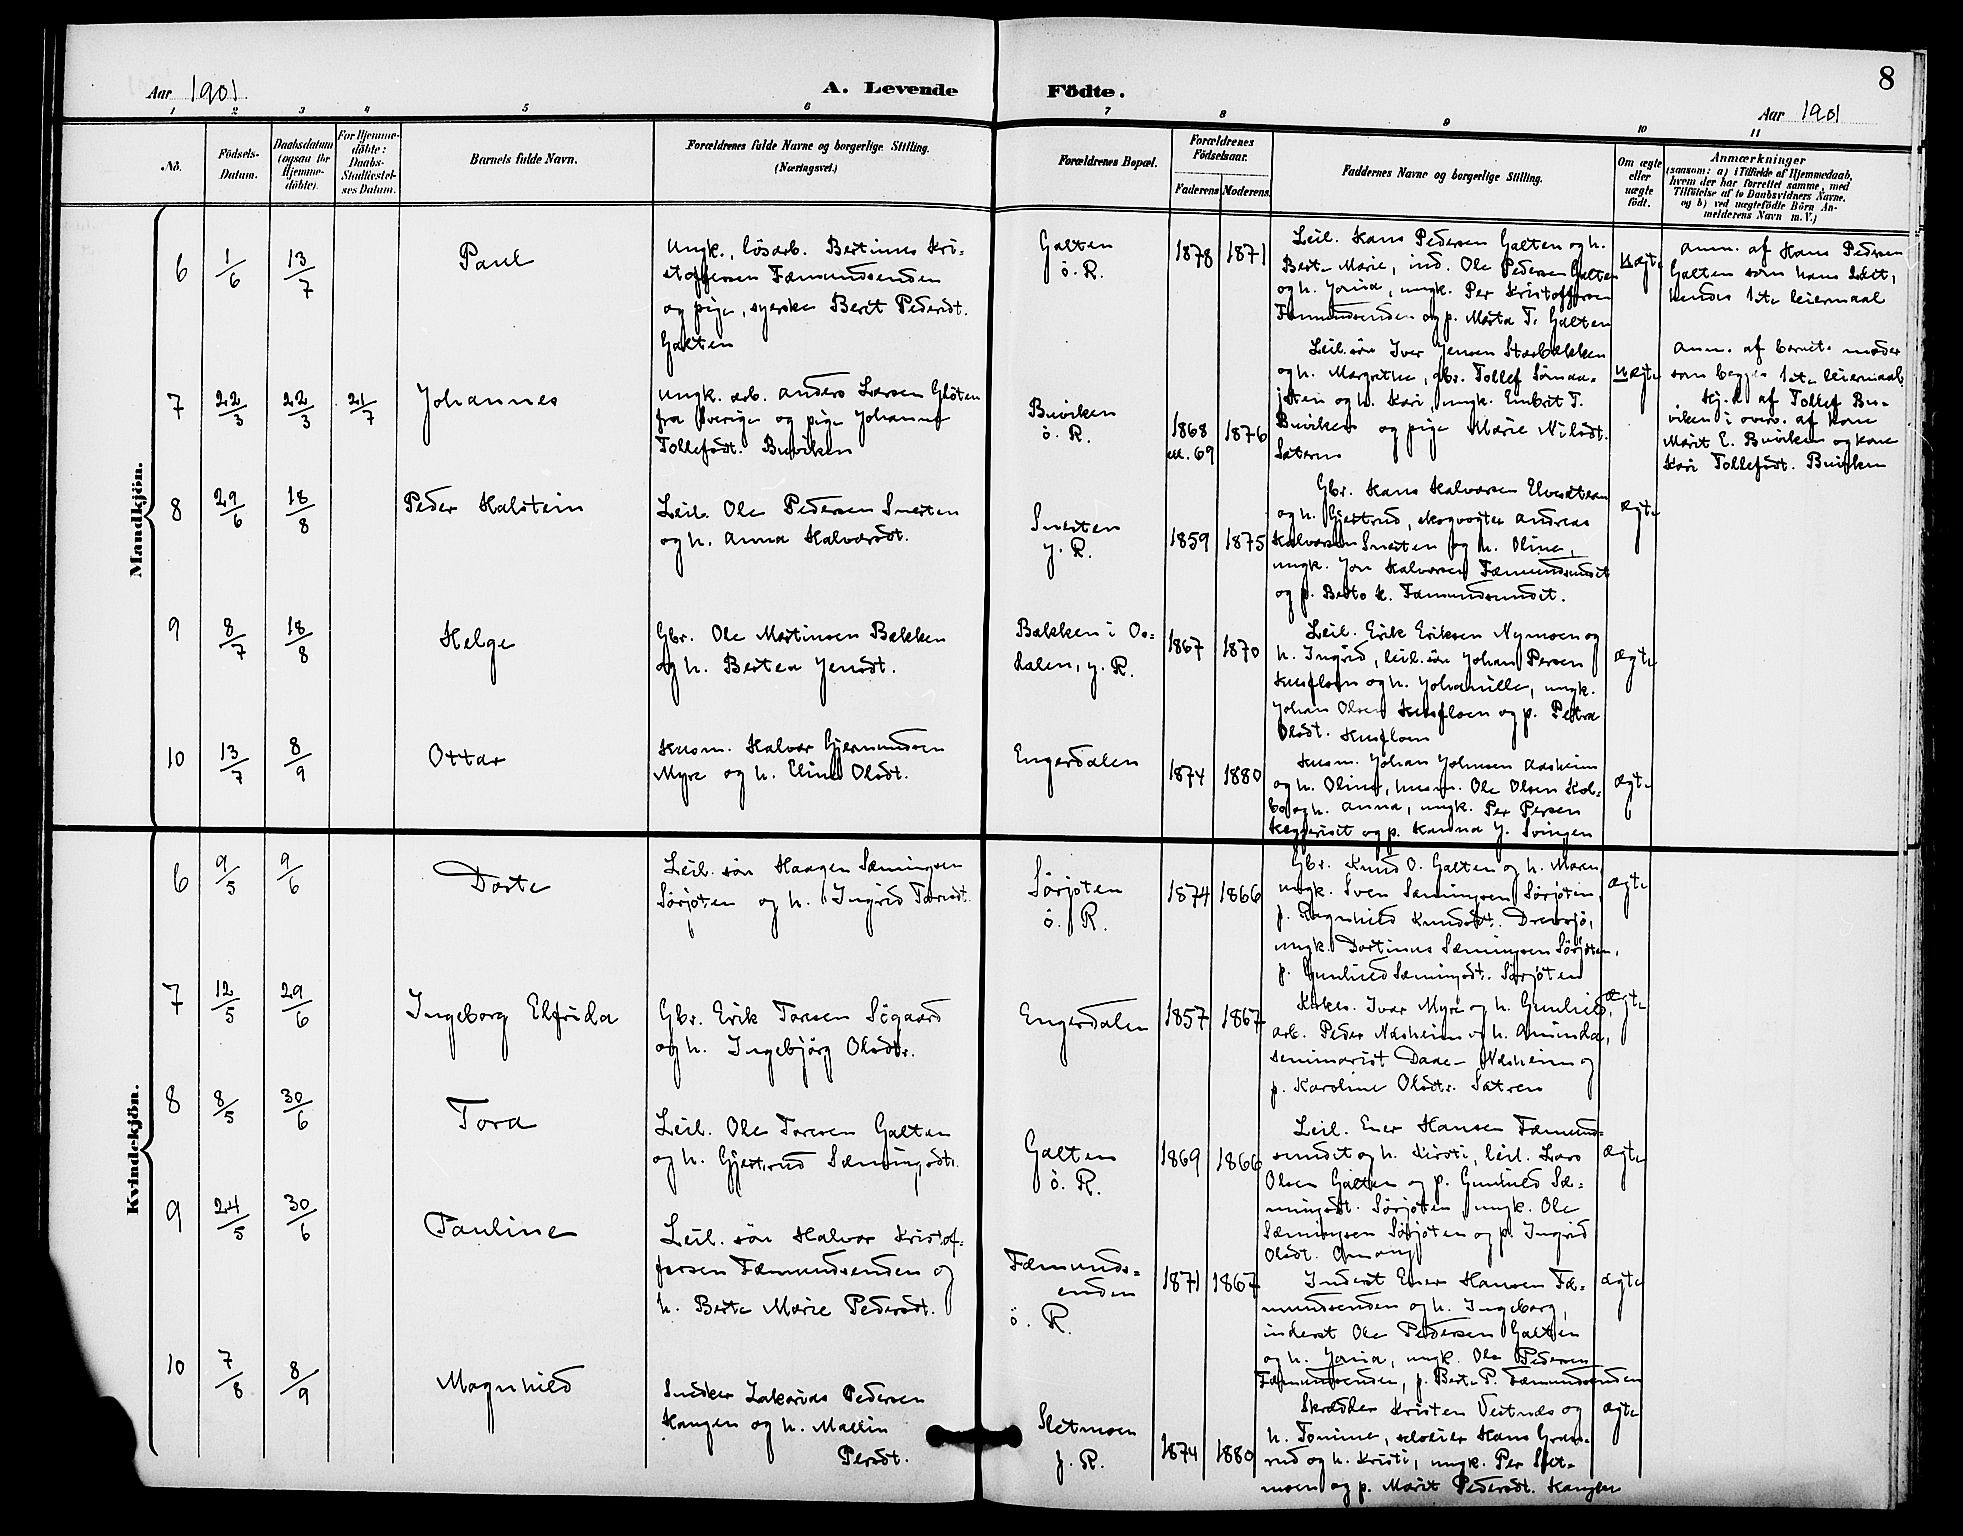 8
Aar 1901
A. Levende Födte.
Aar 1901
1 2 3 4 5 6 7 8 9 10 11
No.
Födsels-
Datum.
Daabsdatum
(ogsaa for
Hjemme-
döbte).
For Hjemme-
döbte:
Daabs-
Stadfæstel-
ses Datum.
Barnets fulde Navn.
Forældrenes fulde Navne og borgerlige Stilling.
(Næringsvei.)
Forældrenes Bopæl.
Forældrenes
Födselsaar.
Faderens Moderens
Faddernes Navne og borgerlige Stilling.
Om ægte
eller
uægte
født.
Anmærkninger
(saasom: a) i Tilfælde af Hjemmedaab,
hvem der har forrettet samme, med
Tilföielse af to Daabsvidners Navne,
og b) ved uægtefödte Börn An-
melderens Navn m. V.)
Mandkjön.
6
1/6
13/7
Paul
Ungk., løsarb. Bertinus Kri-
stoffersen Fæmundsenden
og pige, syerske Berit Pedersdt.
Galten
Galten
ö. R.
1878 1871
Leil. Hans Pedersen Galten og h.
Berte Marie, ind. Ole Pedersen Galten
og h. Jonia, ungk. Per Kristoffersen
Fæmundsenden og p. Marta T. Galten
uægte
Anm. af Hans Pedersen
Galten som hans 2det,
hendes 1ste leiermaal
7
22/3
22/3
21/7
Johannes
Ungk. arb. Anders Larsen Glöten
fra Sverige og pige Johanne
Tollefsdt. Buviken
Buviken
ö. R.
1868
el. 69
1876
Leil. sön Iver Jensen Storbækken
og h. Margrethe, gbr. Tollef Sömaa-
og h. Kari, ungk. Embrit T.
Buviken og pige Marie Nilsdt.
Sæteren
uægte
Anm. af barnets moder
som begges 1ste leiermaal
Hj.d. af Tollef Bu-
viken i overv. af kone
Marit E. Buviken og kone
Kari Tollefsdt. Buviken
8
29/6
18/8
Peder Halstein
Leil. Ole Pedersen Sneiten
og h. Anna Halvorsdt.
Sneiten
y. R.
1859 1875
Gbr. Hans Halvorsen Elvestrean
og h. Gjertrud, skogvogter Andreas
Halvorsen Sneiten og h. Oline,
ungk. Jon Halvorsen Fæmundsundet
og p. Berte H. Fæmundsundet.
ægte
9
8/7
18/8
Helge
Gbr. Ole Martinsen Bakken
og h. Bertea Jensdt.
Bakken i Os-
dalen, y. R.
1867 1870
Leil. Erik Eriksen Nymoen og
h. Ingrid, leil. sön Johan Persen
Husfloen og h. Johanille, ungk.
Johan Olsen Husfloen og p. Petra
Olsdt. Husfloen
ægte
10
13/7
8/9
Ottar
Husm. Halvor Gjermundsen
Myre og h. Eline Olsdt.
Engerdalen
1874 1880
Husm. Johan Johnsen Aasheim
og h. Oline, husm. Ole Olsen Kol-
bo og h. Anna, ungk. Per Persen
Heggeriset og p. Hanna J. Svingen
ægte
Kvindekjön.
6
9/5
9/6
Dorte
Leil. sön Haagen Sæmingsen
Sörjöten og h. Ingrid Toresdt.
Sörjöten
ö. R.
1874 1866
Gbr. Knud O. Galten og h. Maren,
ungk. Sven Sæmingsen Sörjöten,
p. Ragnhild Knudsdt. Drevsjö,
ungk. Dortinus Sæmingsen Sörjöten,
p. Gunhild Sæmingsdt. Sörjöten
ægte
7
12/5
29/6
Ingeborg Elfrida
Gbr. Erik Toresen Sögaard
og h. Ingebjörg Olsdtr.
Engerdalen
1857 1867
Kirkes. Ivar Myre og h. Gunhild,
arb. Peder Næsheim og h. Aminda,
seminarist Daae- Næsheim og
p. Karoline Olsdtr. Sætren
ægte
8
8/5
30/6
Tora
Leil. Ole Toresen Galten
og h. Gjertrud Sæmingsdt.
Galten
ö. R.
1869 1866
Leil. Ener Hansen Fæmund-
sundet og h. Kirsti, leil. Lars
Olsen Galten og p. Gunhild Sæ-
mingsdt. Sörjöten, ungk. Ole
Sæmingsen Sörjöten og p. Ingrid
Olsdt.
ægte
9
24/5
30/6
Pauline
Leil. sön Halvor Kristof-
fersen Fæmundsenden og
h. Berte Marie Pedersdt.
Fæmunds-
enden
ö. R.
1871 1867
Inderst Ener Hansen Fæ-
mundsenden og h. Ingeborg,
inderst Ole Pedersen Galten
og h. Jonia, ungk. Ole Pedersen
Fæmundsenden, p. Berte P. Fæmundsenden
ægte
10
7/8
8/9
Magnhild
Snedker Zakarias Pedersen
Hangen og h. Mallin
Persdt.
Sletmoen
y. R.
1874 1880
Skrædder Kristen Vestnæs og
h. Tomine, Hans Gran-
rud og h. Kristi, ungk. Per Slet-
moen og p. Marit Pedersdt. Hangen
ægte